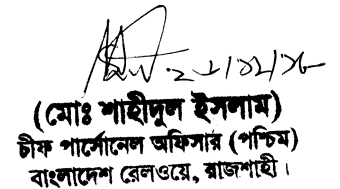 (মোঃ শাহীদুল ইসলাম)
চীফ পার্সোনেল অফিসার (পশ্চিম)
বাংলাদেশ রেলওয়ে, রাজশাহী।